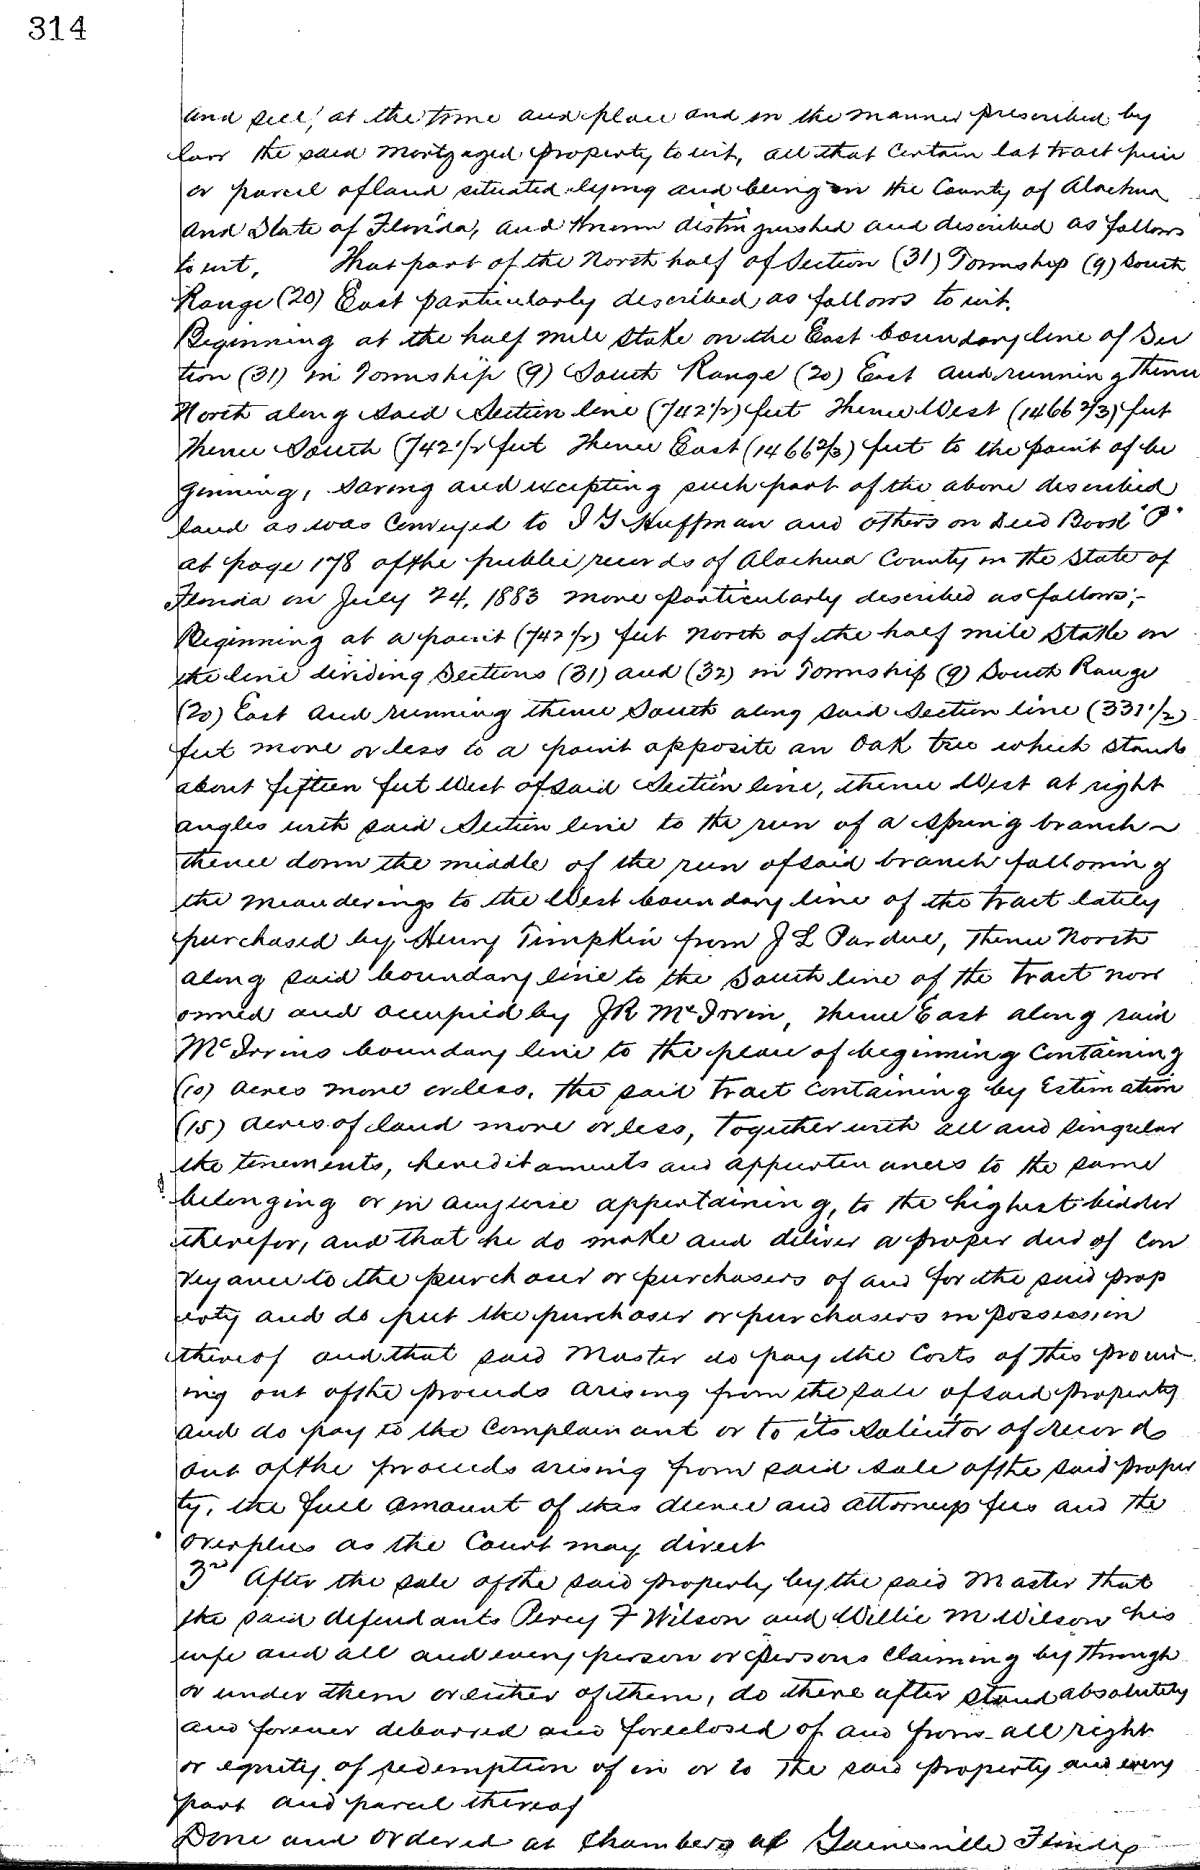 314
and sell, at the time and place and in the manner prescribed by
law the said mortgaged property to wit, all that certain lot tract piece
or parcel of land situated lying and being in the County of Alachua
and State of Florida, and known distinguished and described as follows
to wit, That part of the North half of Section (31) Township (9) South
Range (20) East particularly described as follows to wit.
Beginning at the half mile stake on the East boundary line of Sec
tion (31) in Township (9) South Range (20) East and running thence
North along said Section line (742 1/2) feet thence West (1466 2/3) feet
thence South (742 1/2 feet thence East (1466 2/3) feet to the point of be
ginning, saving and excepting such part of the above described
land as was conveyed to J G Huffman and others on Deed Book "P"
at page 178 of the public records of Alachua County in the State of
Florida on July 24, 1883 more particularly described as follows;-
Beginning at a point (742 1/2) feet North of the half mile stake on
the line dividing Sections (31) and (32) in Township (9) South Range
(20) East and running thence South along said Section line (331 1/2)
feet more or less to a point opposite an Oak tree which stands
about fifteen feet West of said Section line, thence West at right
angles with said Section line to the run of a spring branch -
thence down the middle of the run of said branch following
the meanderings to the West boundary line of the tract lately
purchased by Henry Timpkin from J L Pardue, thence North
along said boundary line to the South line of the tract now
owned and occupied by JR McIrvin, thence East along said
McIrvins boundary line to the place of beginning containing
(10) acres more or less. the said tract containing by Estimation
(15) acres of land more or less, together with all and singular
the tenements, hereditaments and appurtenances to the same
belonging or in anywise appertaining, to the highest bidder
therefor, and that he do make and deliver a proper deed of con
veyance to the purchaser or purchasers of and for the said prop
erty and do put the purchaser or purchasers in possession
thereof and that said Master do pay the Costs of this proceed
ing out of the proceeds arising from the sale of said property
and do pay to the Complainant or to its solicitor of records
out of the proceeds arising from said sale of the said proper
ty, the full amount of this decree and attorneys fees and the
overplus as the Court may direct
3rd After the sale of the said property by the said Master that
the said defendants Percy F Wilson and Willie M Wilson his
wife and all and every person or persons claiming by through
or under them or either of them, do there after stand absolutely
and forever debarred and foreclosed of and from all right
or equity of redemption of in or to the said property and every
part and parcel thereof
Done and ordered at Chambers at Gainesville Florida